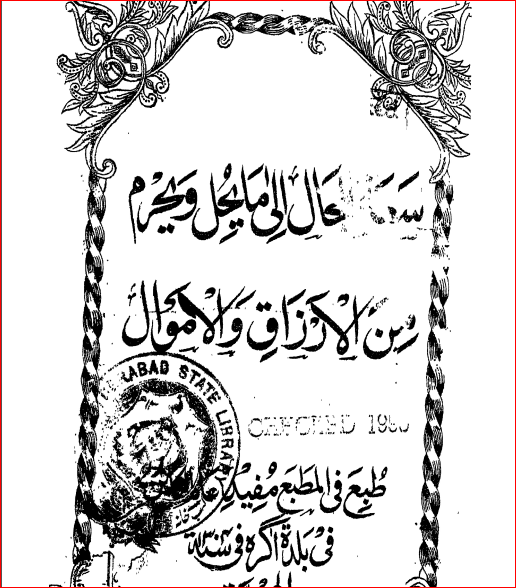 عال إلى ما يحل ويحرم
من الأرزاق والأموال
RABAD STATE LIBRA
CHECKED 19
طبع في المطبع مفيد
في بلدة اگره في سنة